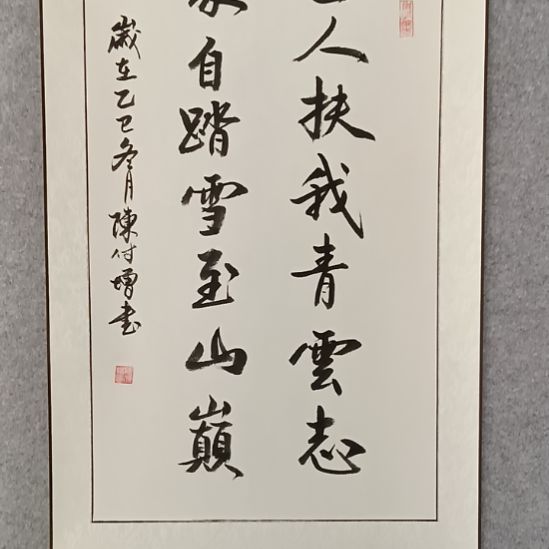 人扶我青雲志
自踏雪至山巔
歲在乙巳冬月陳付增書